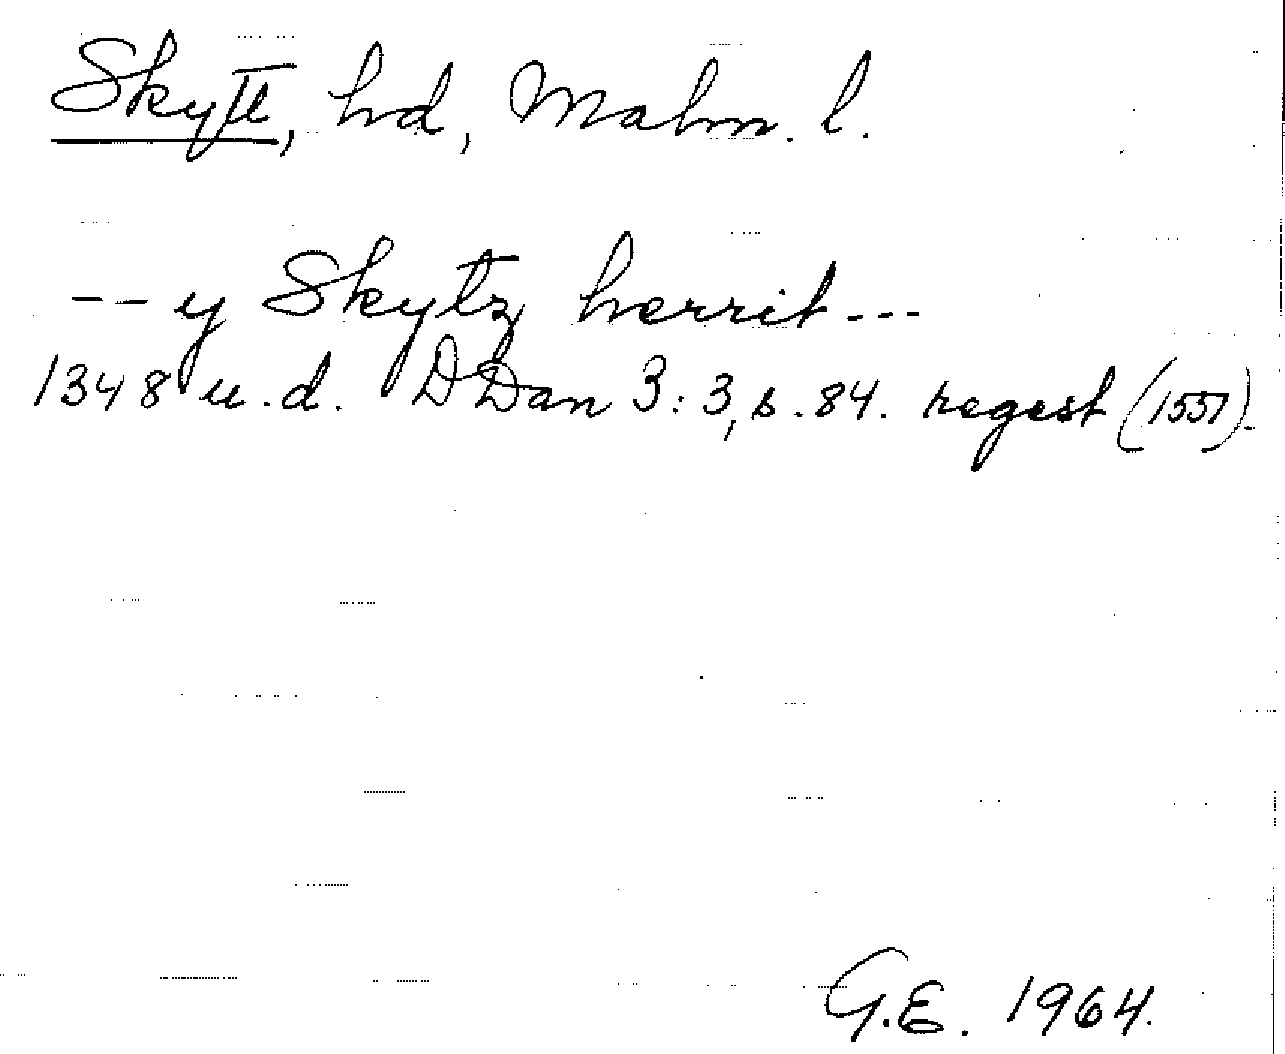 Skytt, hd, Malm. l.
-- y Skytz herrit ---
1348 u.d. DDan 3: 3, s. 84. regest (1557).
G.E. 1964.